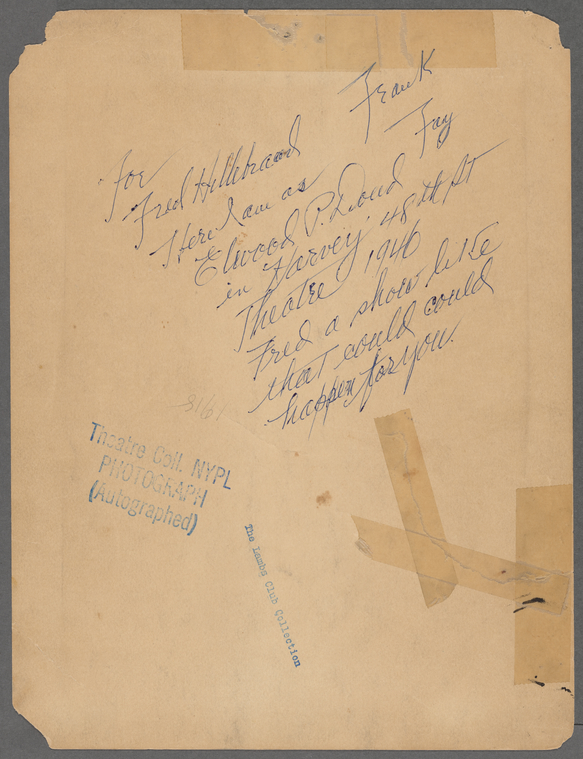 for
Fred Hillebrand
Here I am as
Elwood P. Dowd
in Harvey, 48th St
Theatre 1946
Fred a show like
that could could
happen for you.
Frank
Fay
Theatre Coll. NYPL
PHOTOGRAPH
(Autographed)
The Lambs Club Collection